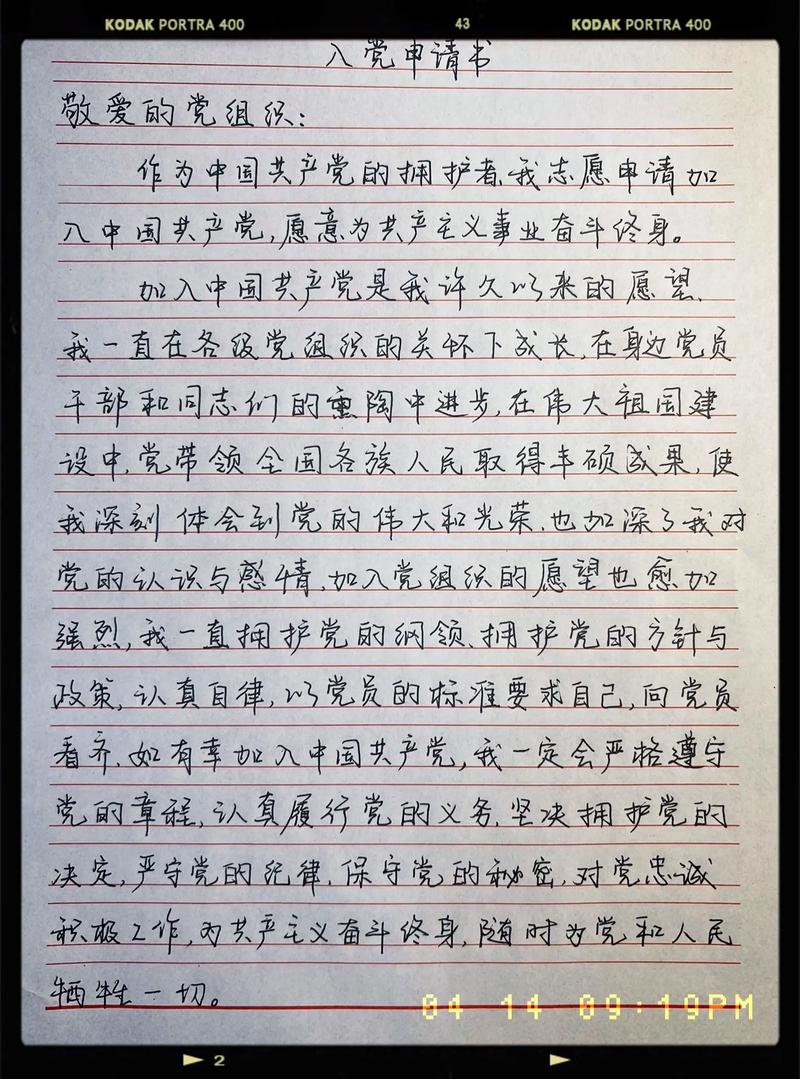 KODAK PORTRA 400 43 KODAK PORTRA 400
入党申请书
敬爱的党组织：
作为中国共产党的拥护者，我志愿申请加
入中国共产党，愿意为共产主义事业奋斗终身。
加入中国共产党是我许久以来的愿望，
我一直在各级党组织的关怀下成长，在身边党员
干部和同志们的熏陶中进步，在伟大祖国建
设中，党带领全国各族人民取得丰硕成果，使
我深刻体会到党的伟大和光荣，也加深了我对
党的认识与感情，加入党组织的愿望也愈加
强烈，我一直拥护党的纲领、拥护党的方针与
政策，认真自律，以党员的标准要求自己，向党员
看齐，如有幸加入中国共产党，我一定会严格遵守
党的章程，认真履行党的义务，坚决拥护党的
决定，严守党的纪律，保守党的秘密，对党忠诚
积极工作，为共产主义奋斗终身，随时为党和人民
牺牲一切。
04 14 09:19PM
2